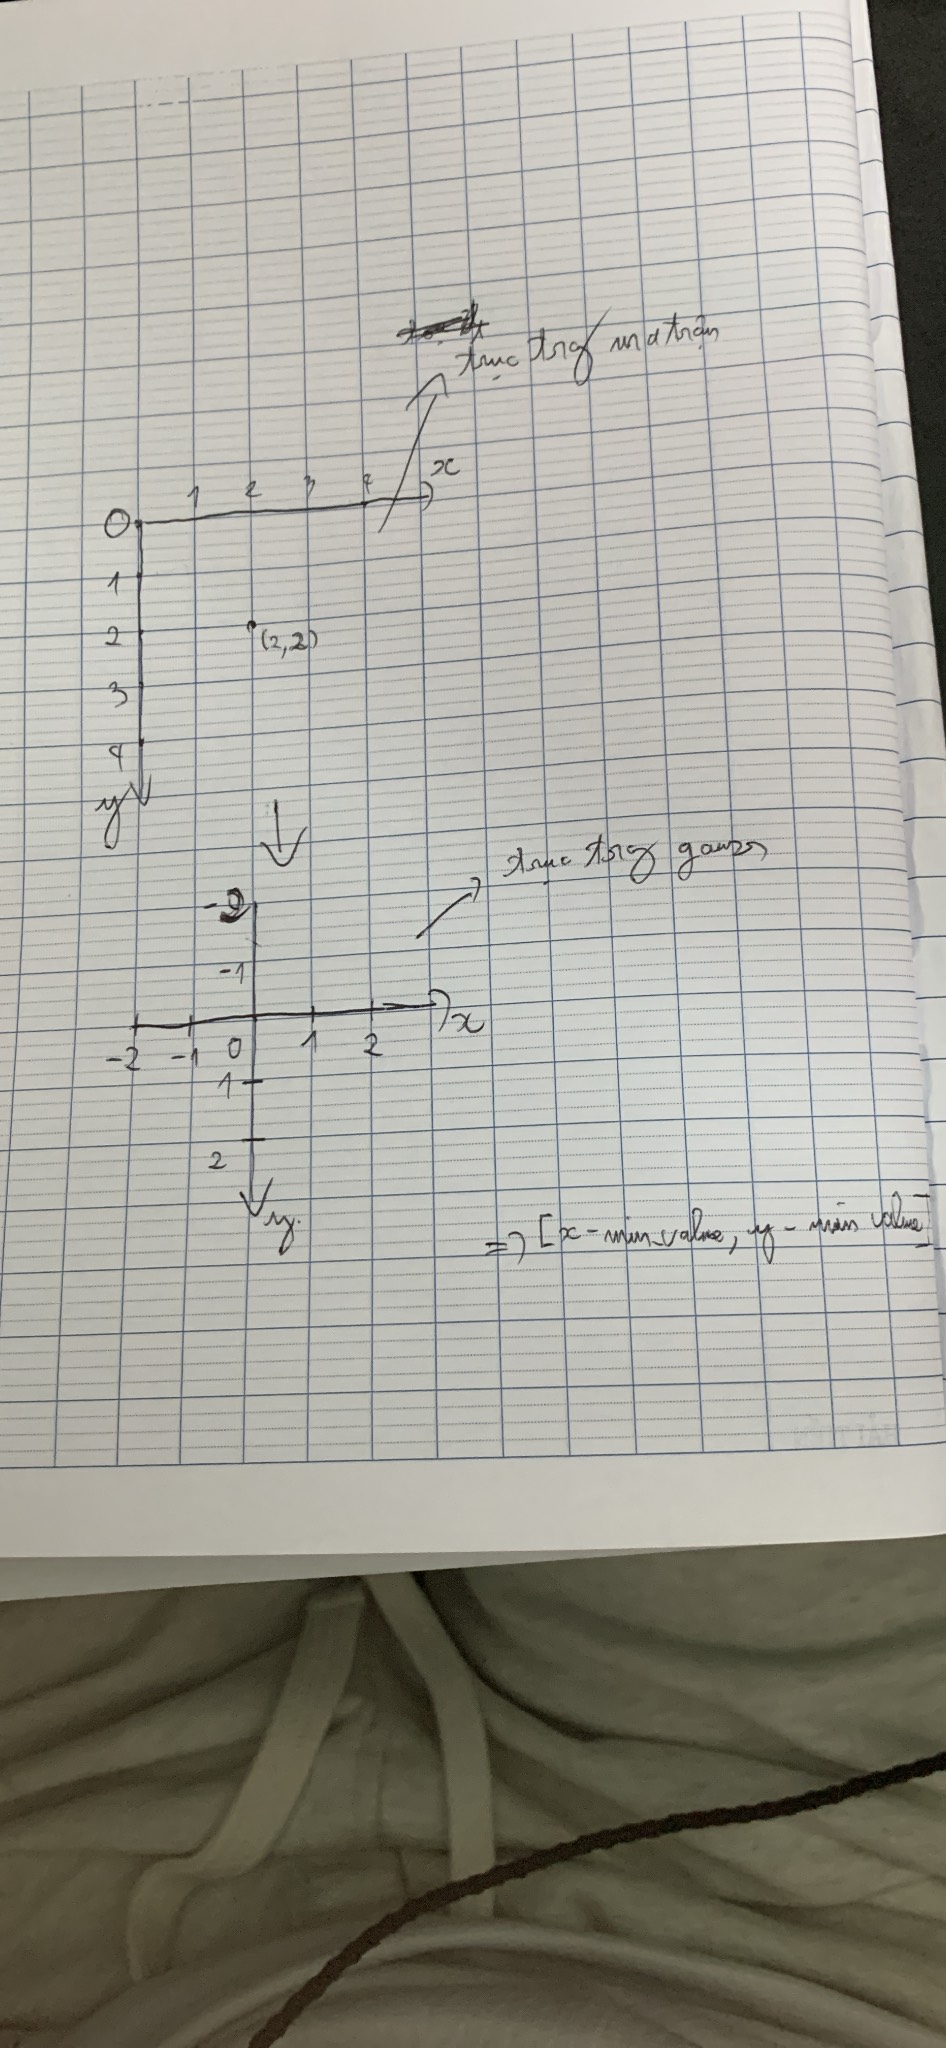 trục trg ma trận
x
0 1 2 3 4
1
2 (2,2)
3
4
y
trục trg gauss
-2
-1
x
-2 -1 0 1 2
1
2
y
=> [x - min_value, y - min value]